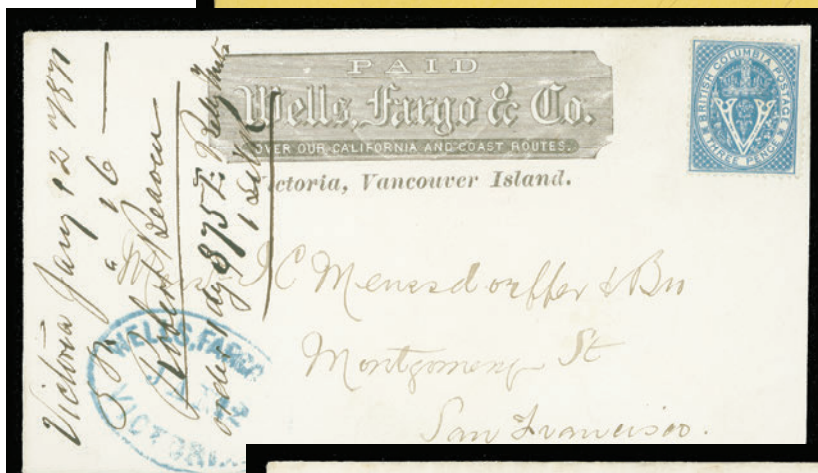 PAID
Wells, Fargo & Co.
OVER OUR CALIFORNIA AND COAST ROUTES.
Victoria, Vancouver Island.
BRITISH COLUMBIA POSTAGE
THREE PENCE
V
J C Menesdorffer & Bro
Montgomery St
San Francisco.
Victoria Jany 12 1871
" 16
Robert Beaven
order 1 dz 875
WELLS, FARGO
JAN 12
VICTORIA